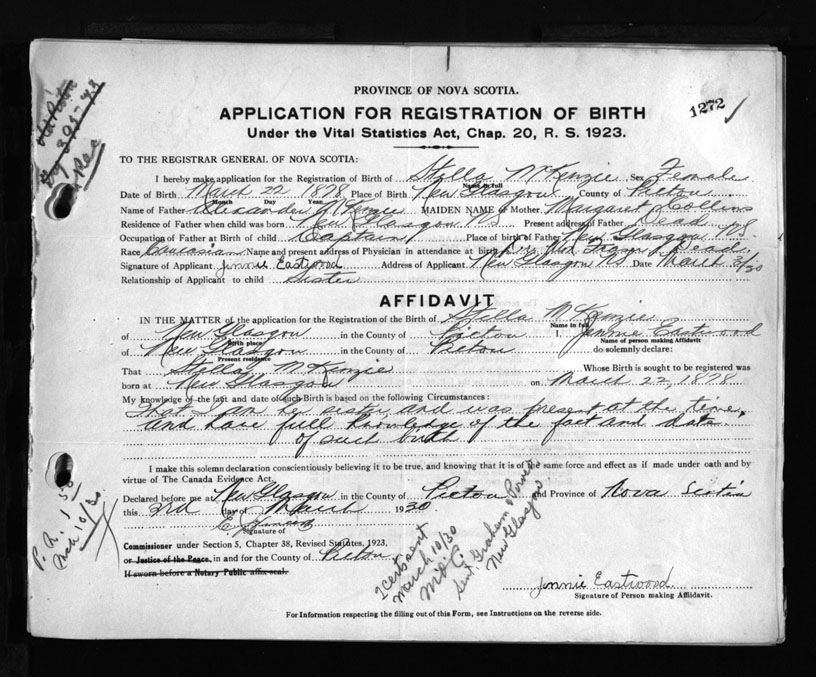 PROVINCE OF NOVA SCOTIA.
1272
APPLICATION FOR REGISTRATION OF BIRTH
Under the Vital Statistics Act, Chap. 20, R. S. 1923.
TO THE REGISTRAR GENERAL OF NOVA SCOTIA:
I hereby make application for the Registration of Birth of Stella McKenzie Sex Female
Name in full
Date of Birth March 22 1878 Place of Birth New Glasgow County of Pictou
Month Day Year
Name of Father Alexander McKenzie MAIDEN NAME of Mother Margaret Collins
Residence of Father when child was born New Glasgow N S Present address of Father Dead
Occupation of Father at Birth of child Captain Place of birth of Father New Glasgow N S
Race Caucasian Name and present address of Physician in attendance at birth Dead
Signature of Applicant Jennie Eastwood Address of Applicant New Glasgow N S Date March 3/30
Relationship of Applicant to child Sister
AFFIDAVIT
IN THE MATTER of the application for Registration of the Birth of Stella McKenzie
Name in full
of New Glasgow in the County of Pictou I, Jennie Eastwood
Birth place Name of person making affidavit
of New Glasgow in the County of Pictou do solemnly declare:
Present residence
That Stella McKenzie Whose Birth is sought to be registered was
born at New Glasgow on March 22, 1878
My knowledge of the fact and date of such Birth is based on the following Circumstances:
That I am her sister and was present at the time,
and have full knowledge of the fact and date
of such birth
I make this solemn declaration conscientiously believing it to be true, and knowing that it is of the same force and effect as if made under oath and by
virtue of The Canada Evidence Act.
Declared before me at New Glasgow in the County of Pictou and Province of Nova Scotia
this 3rd day of March 1930
Signature of
Commissioner under Section 5, Chapter 38, Revised Statutes, 1923,
or Justice of the Peace, in and for the County of Pictou
If sworn before a Notary Public affix seal.
1 cert sent
March 10/30
Sent Graham & Power
New Glasgow
P. N. 1 50
Mch 10/30
Jennie Eastwood
Signature of Person making Affidavit.
For Information respecting the filling out of this Form, see Instructions on the reverse side.